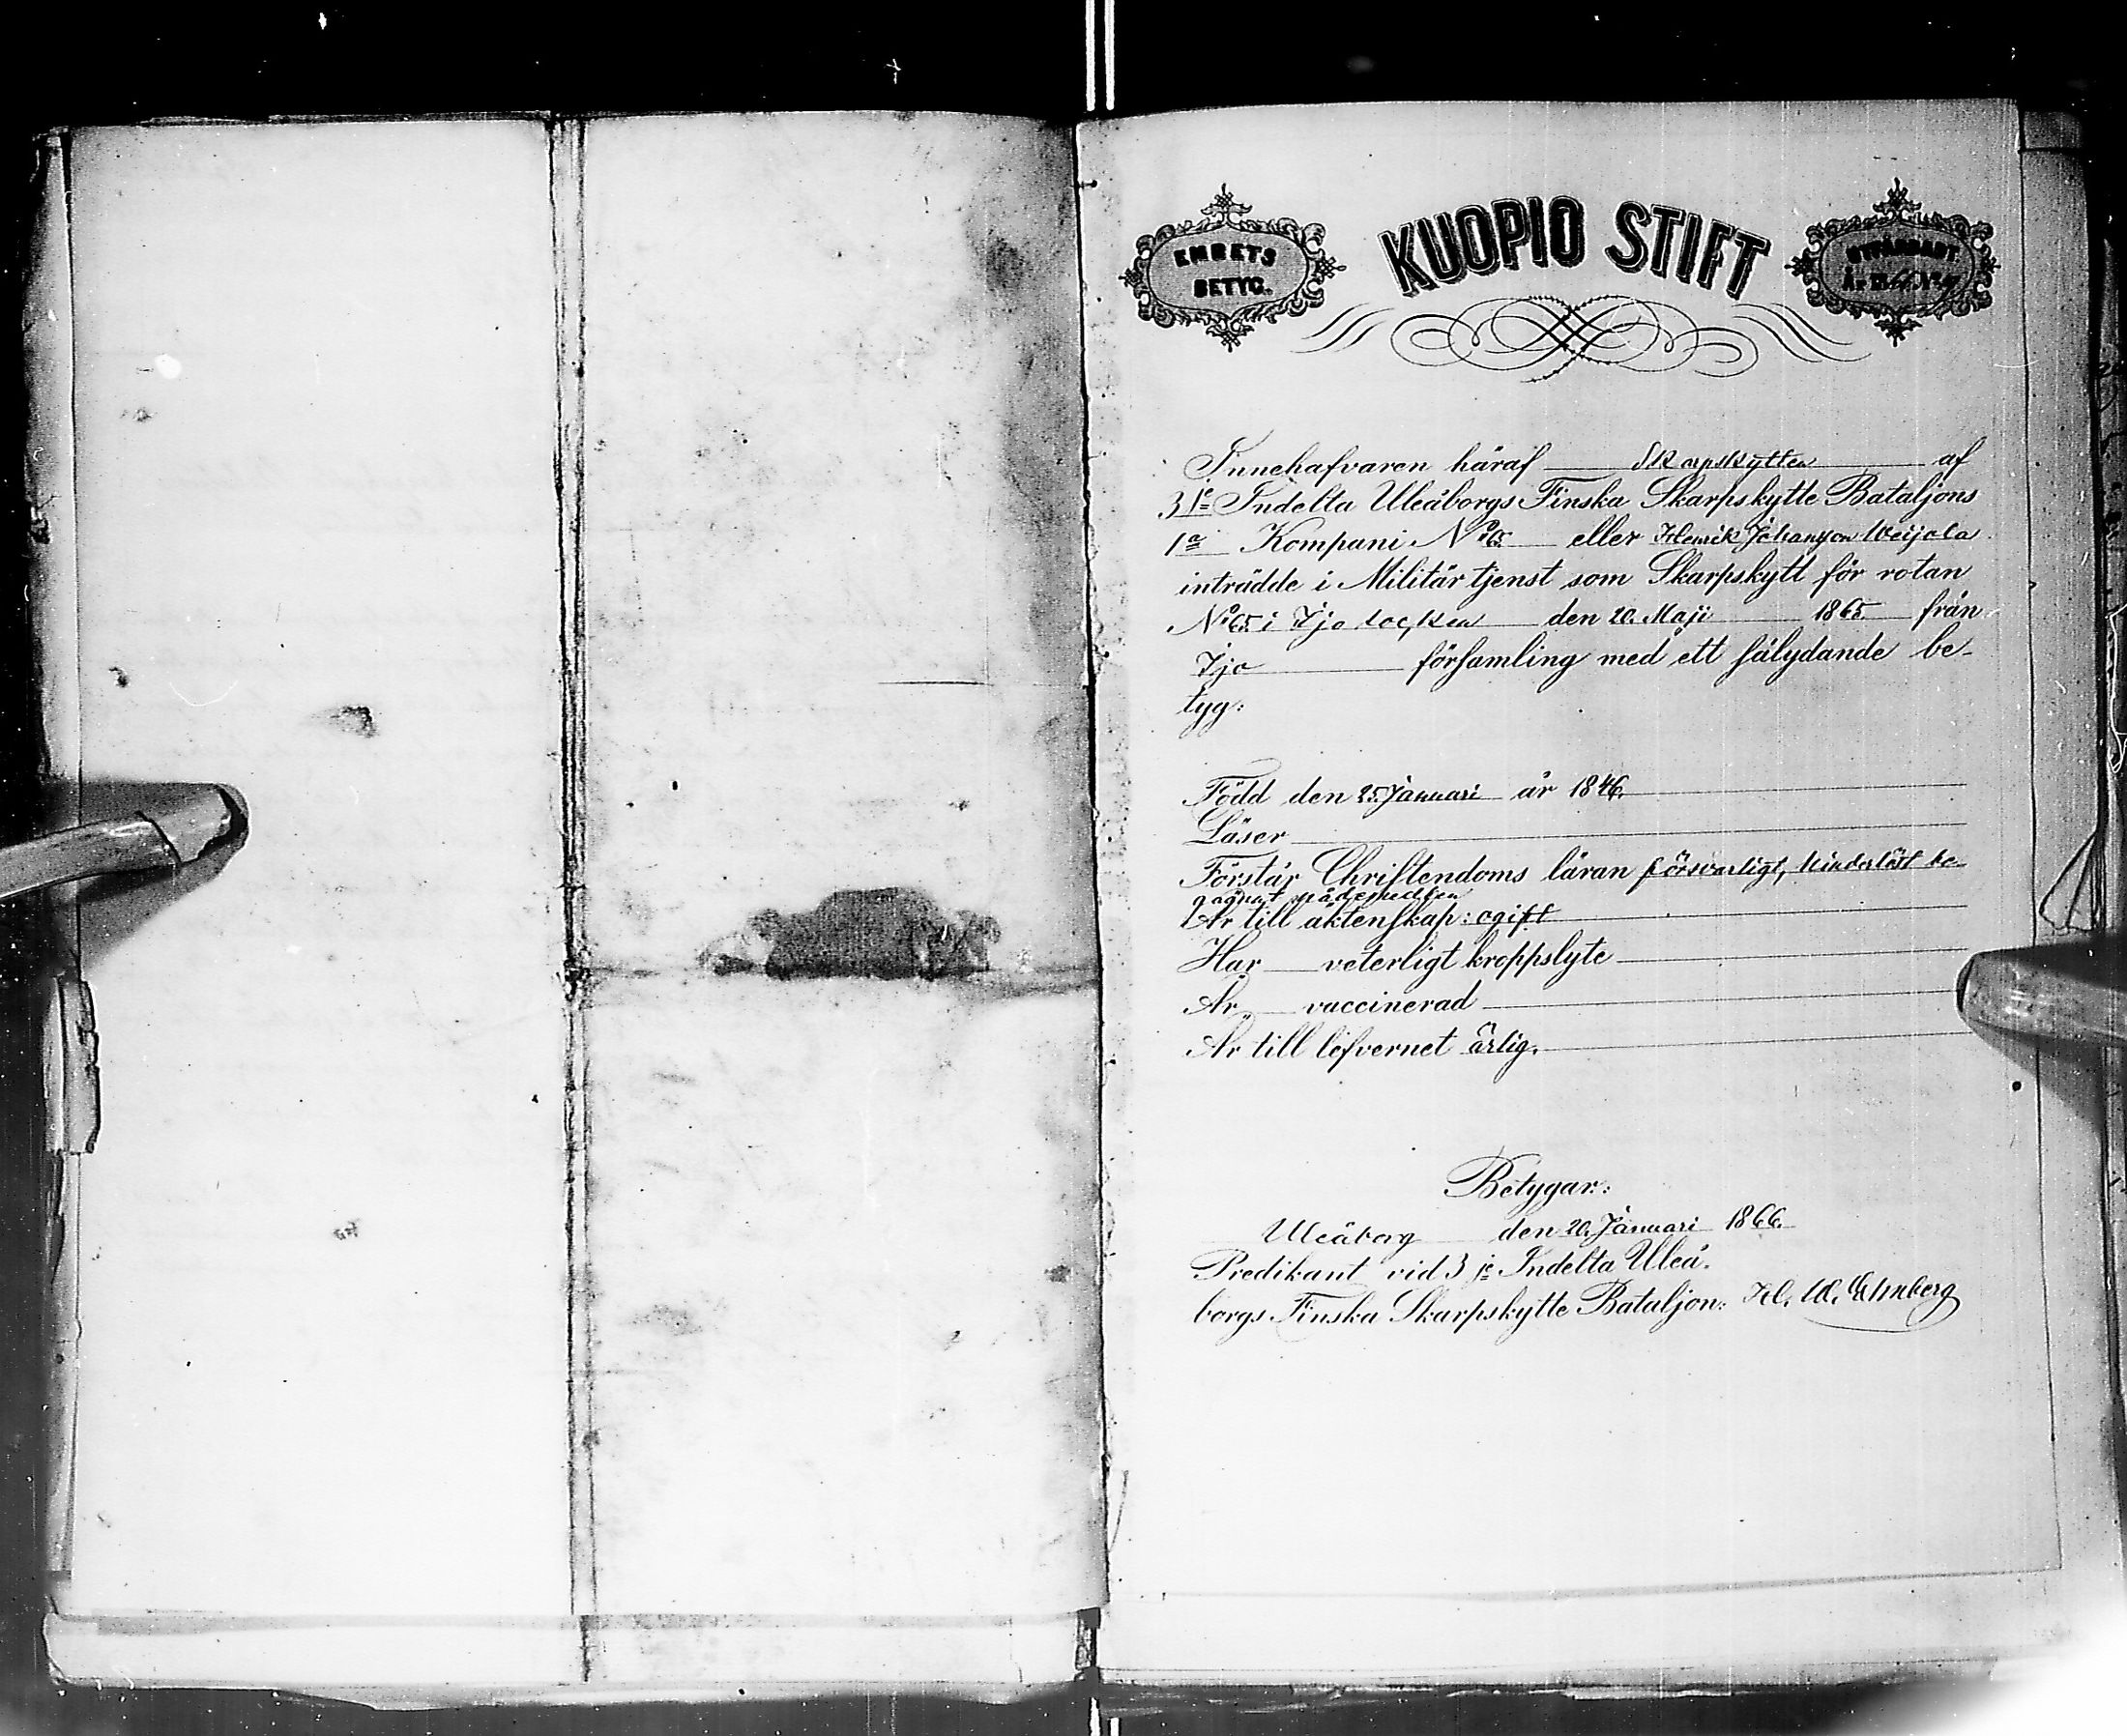 EMBETS
BETYG.
KUOPIO STIFT
UTFÄRDADT
År 1866 No
Innehafvaren häraf Skarpskytten af
3je Indelta Uleåborgs Finska Skarpskytte Bataljons
1a Kompani No 65 eller Henrik Johansson Weijola
inträdde i Militär tjenst som Skarpskytt för rotan
No 65 i Ijo socken den 20. Maji 1865 från
Ijo församling med ett sålydande be-
tyg:
Född den 25. Januari år 1846.
Läser
Förstår Christendoms läran försvarligt, hinderlöst be-
gagnat nådemedlen
Är till äktenskap: ogift
Har veterligt kroppslyte
Är vaccinerad
Är till lefvernet ärlig.
Betygar:
Uleåborg den 20. Januari 1866.
Predikant vid 3je Indelta Uleå-
borgs Finska Skarpskytte Bataljon: